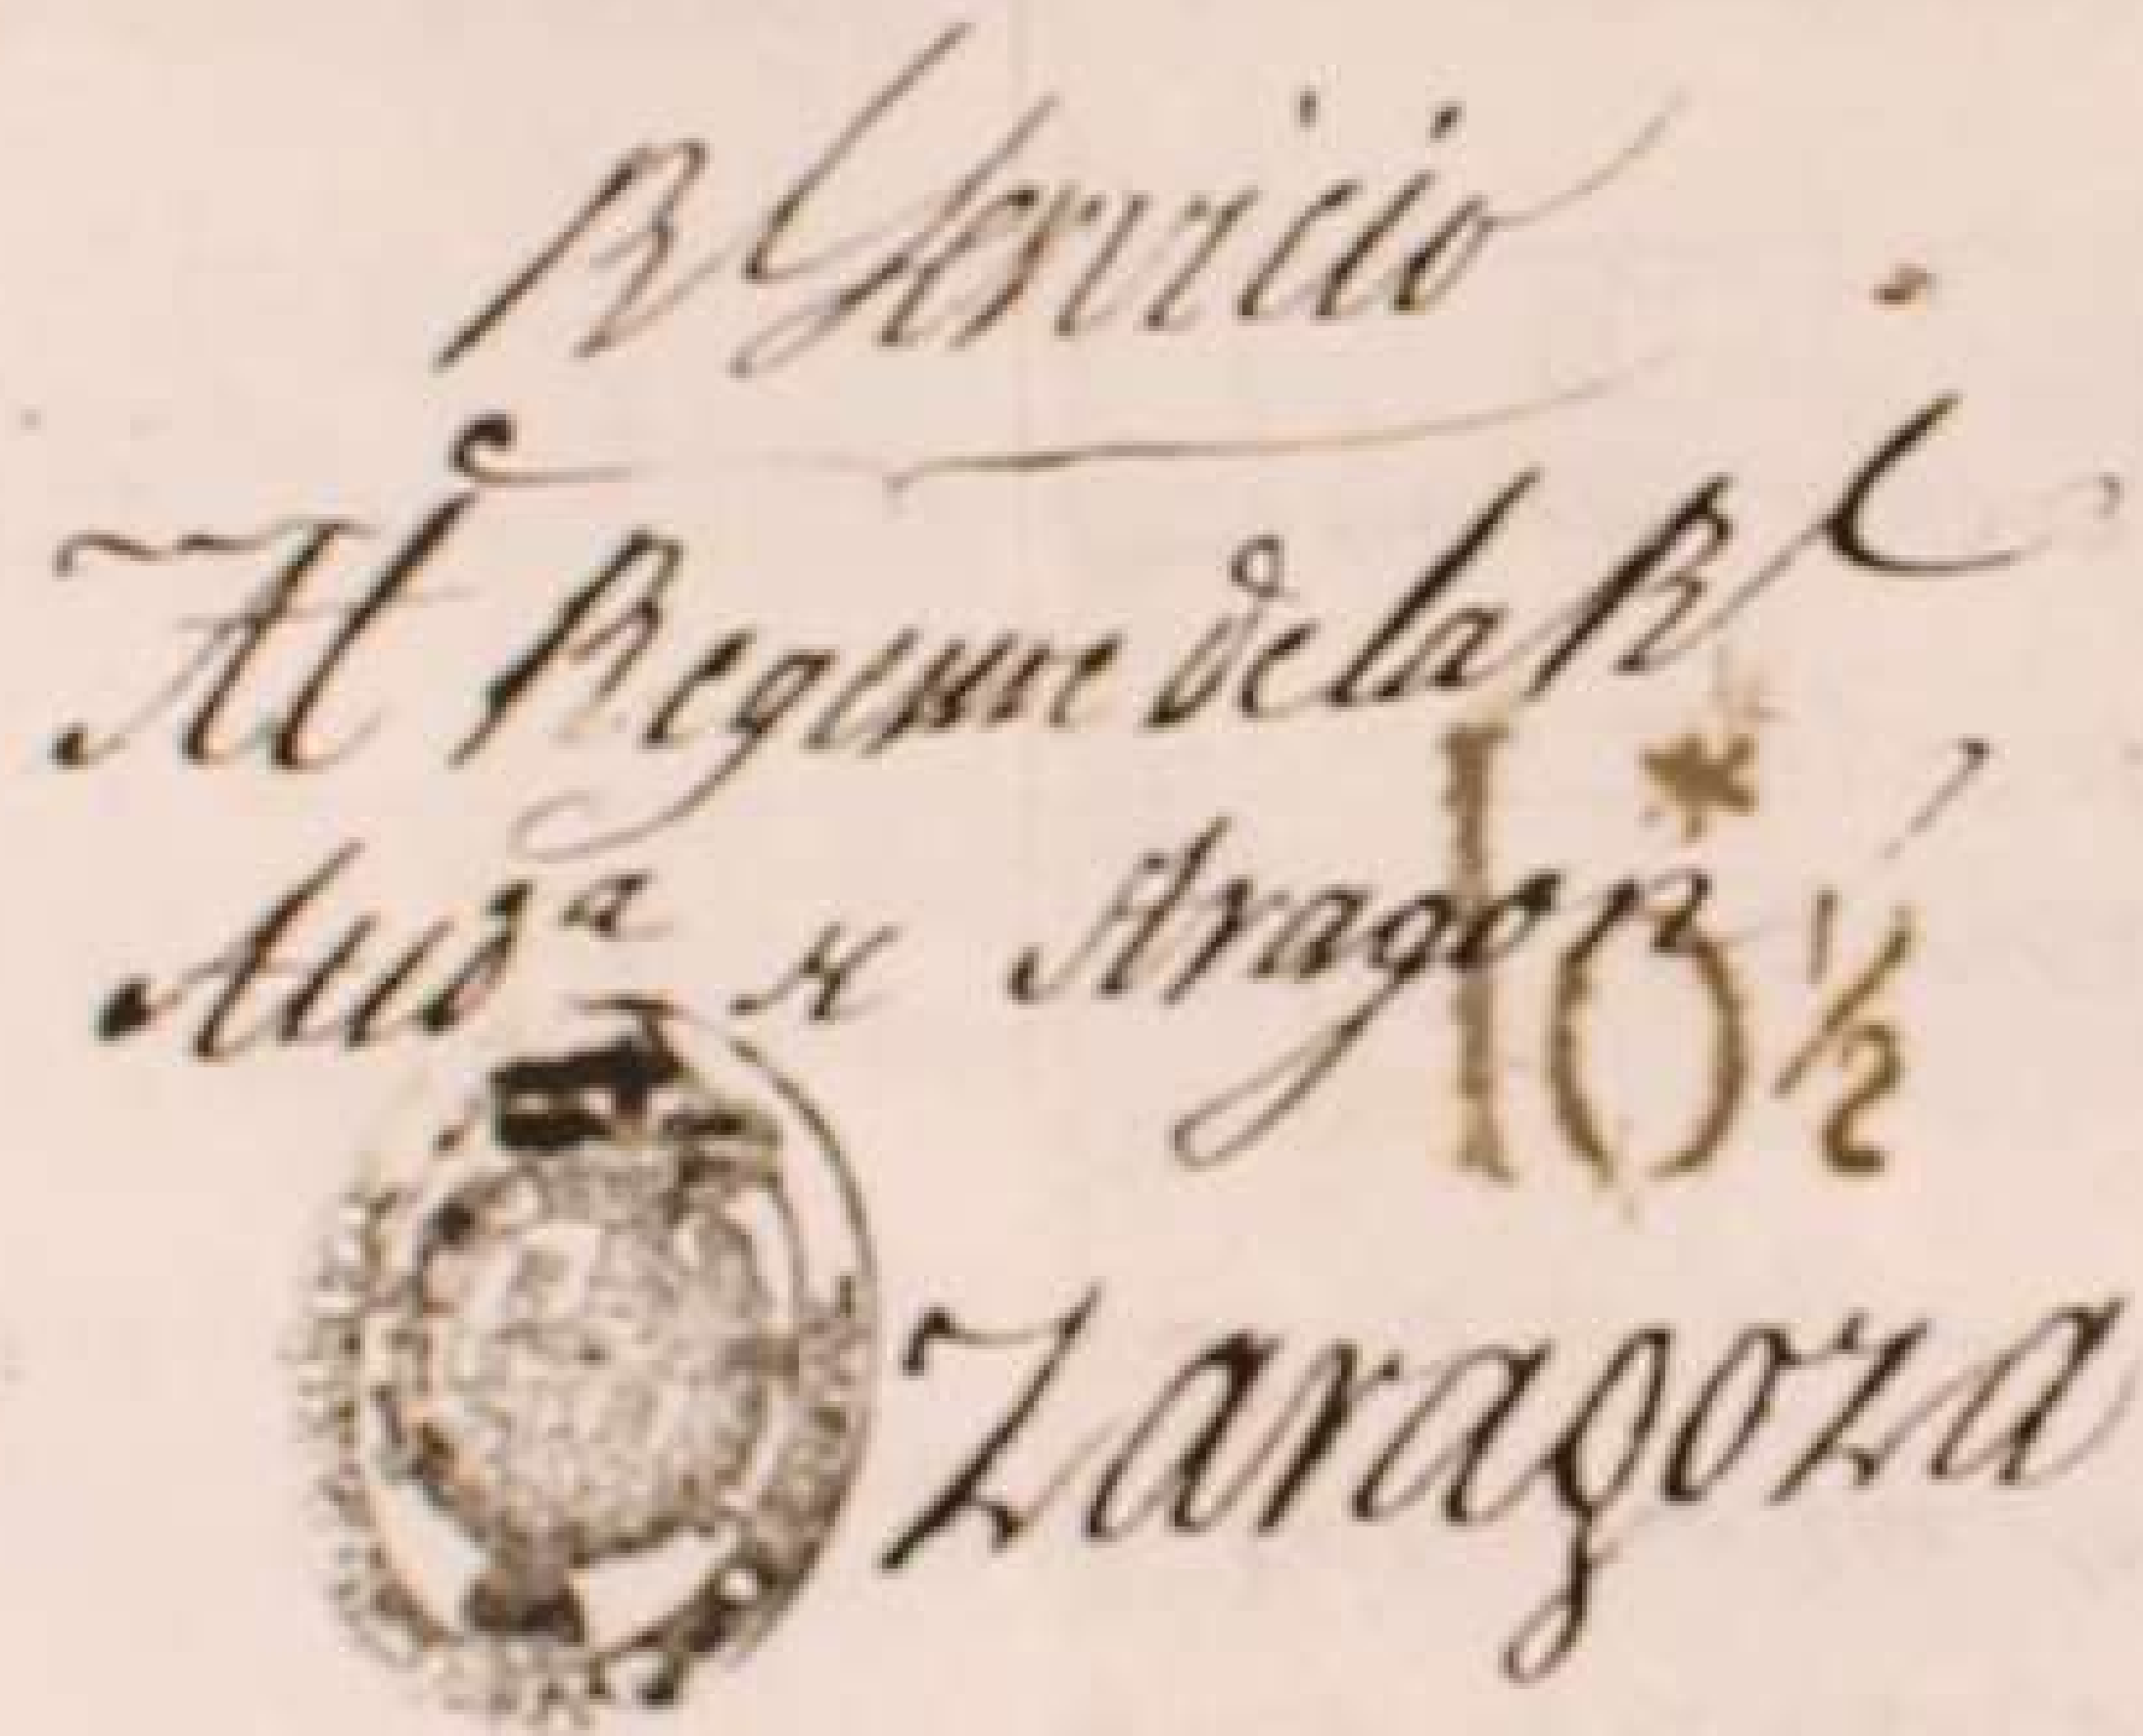 Rl Servicio
Al Regente de la Rl
Auda de Aragon
10 1/2
Zaragoza